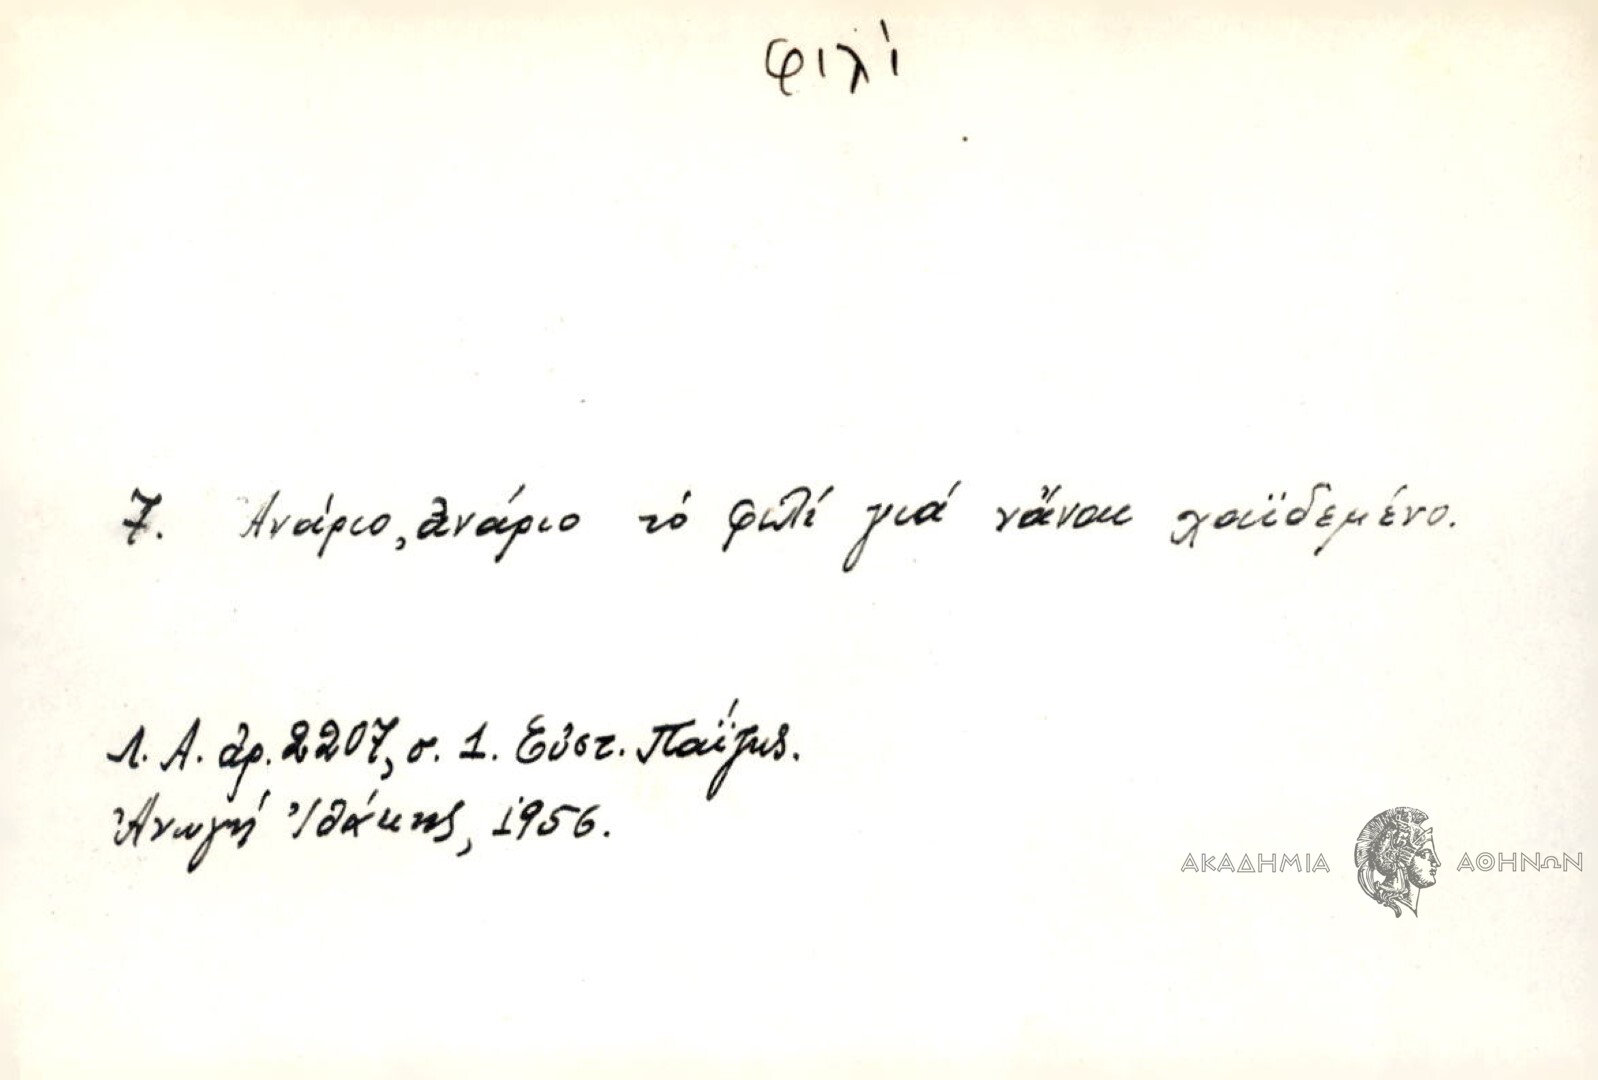 φιλί
7. Ἀνάριο, ἀνάριο τό φιλί γιά νἆναι χαϊδεμένο.
Λ. Α. ἀρ. 2207, σ. 1. Εὐστ. Παΐζης.
Ἀνωγή Ἰθάκης, 1956.
ΑΚΑΔΗΜΙΑ ΑΘΗΝΩΝ